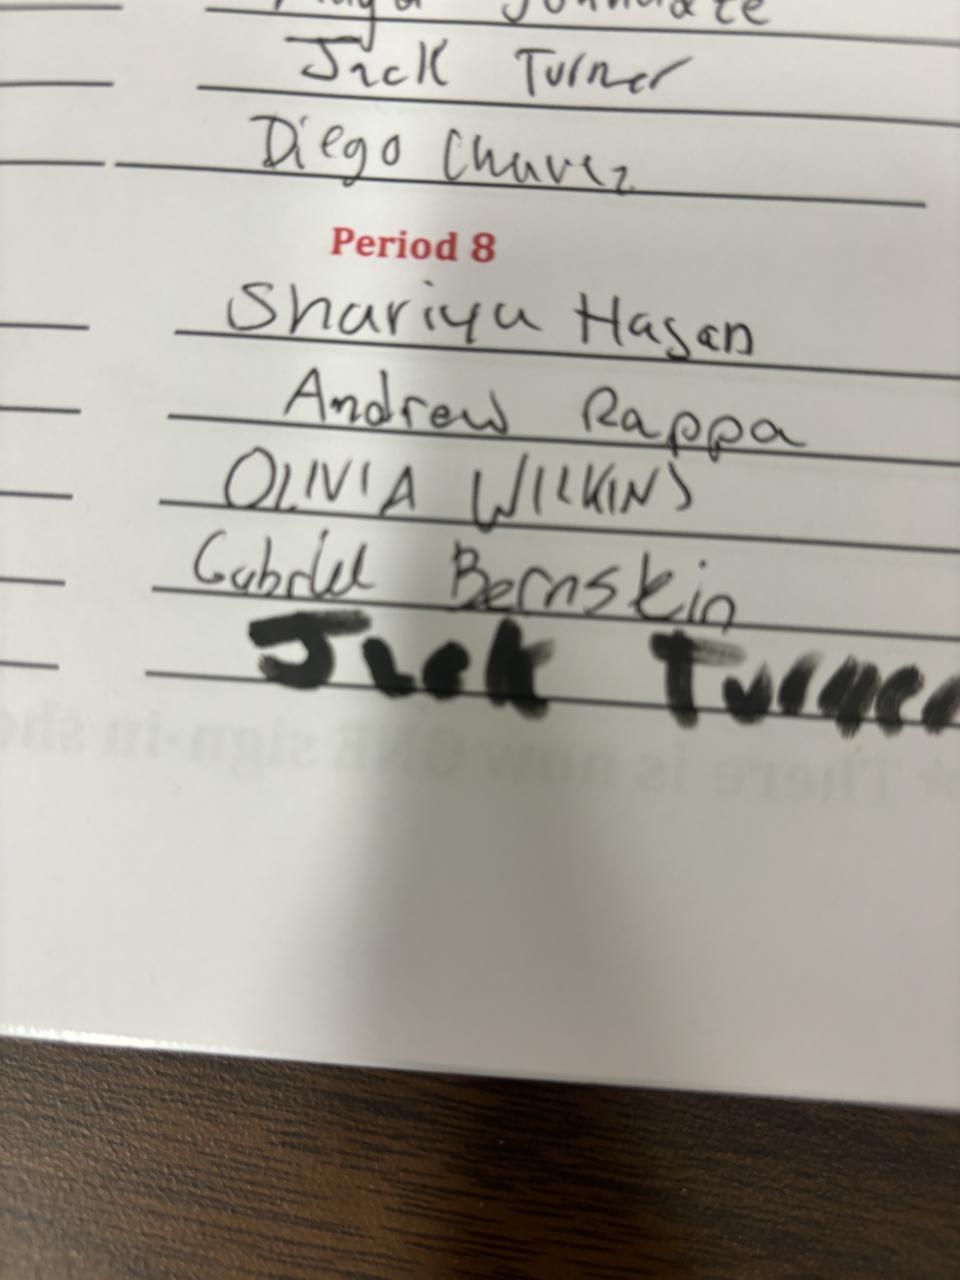 Jack Turner
Diego Chavez
Period 8
Shariya Hasan
Andrew Rappa
OLIVIA WILKINS
Gabriel Bernstein
Jack Turner
★ There is now ONE sign-in she